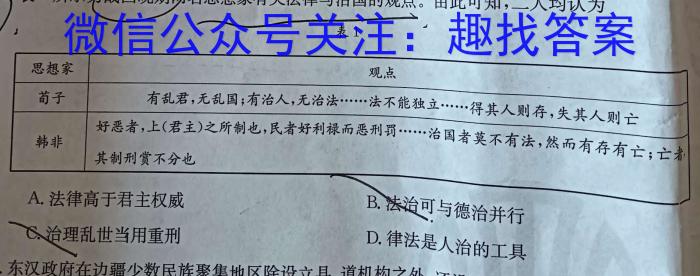 表1所示为战国晚期两名思想家有关法律与治国的观点。由此可知,二人均认为
微信公众号关注：趣找答案
表1
思想家 观点
荀子 有乱君,无乱国;有治人,无治法……法不能独立……得其人则存,失其人则亡
韩非 好恶者,上(君主)之所制也,民者好利禄而恶刑罚……治国者莫不有法,然而有存有亡;亡者
其制刑赏不分也
A. 法律高于君主权威 B. 法治可与德治并行
C. 治理乱世当用重刑 D. 律法是人治的工具
东汉政府在边疆少数民族聚集地区除设立县、道机构之外